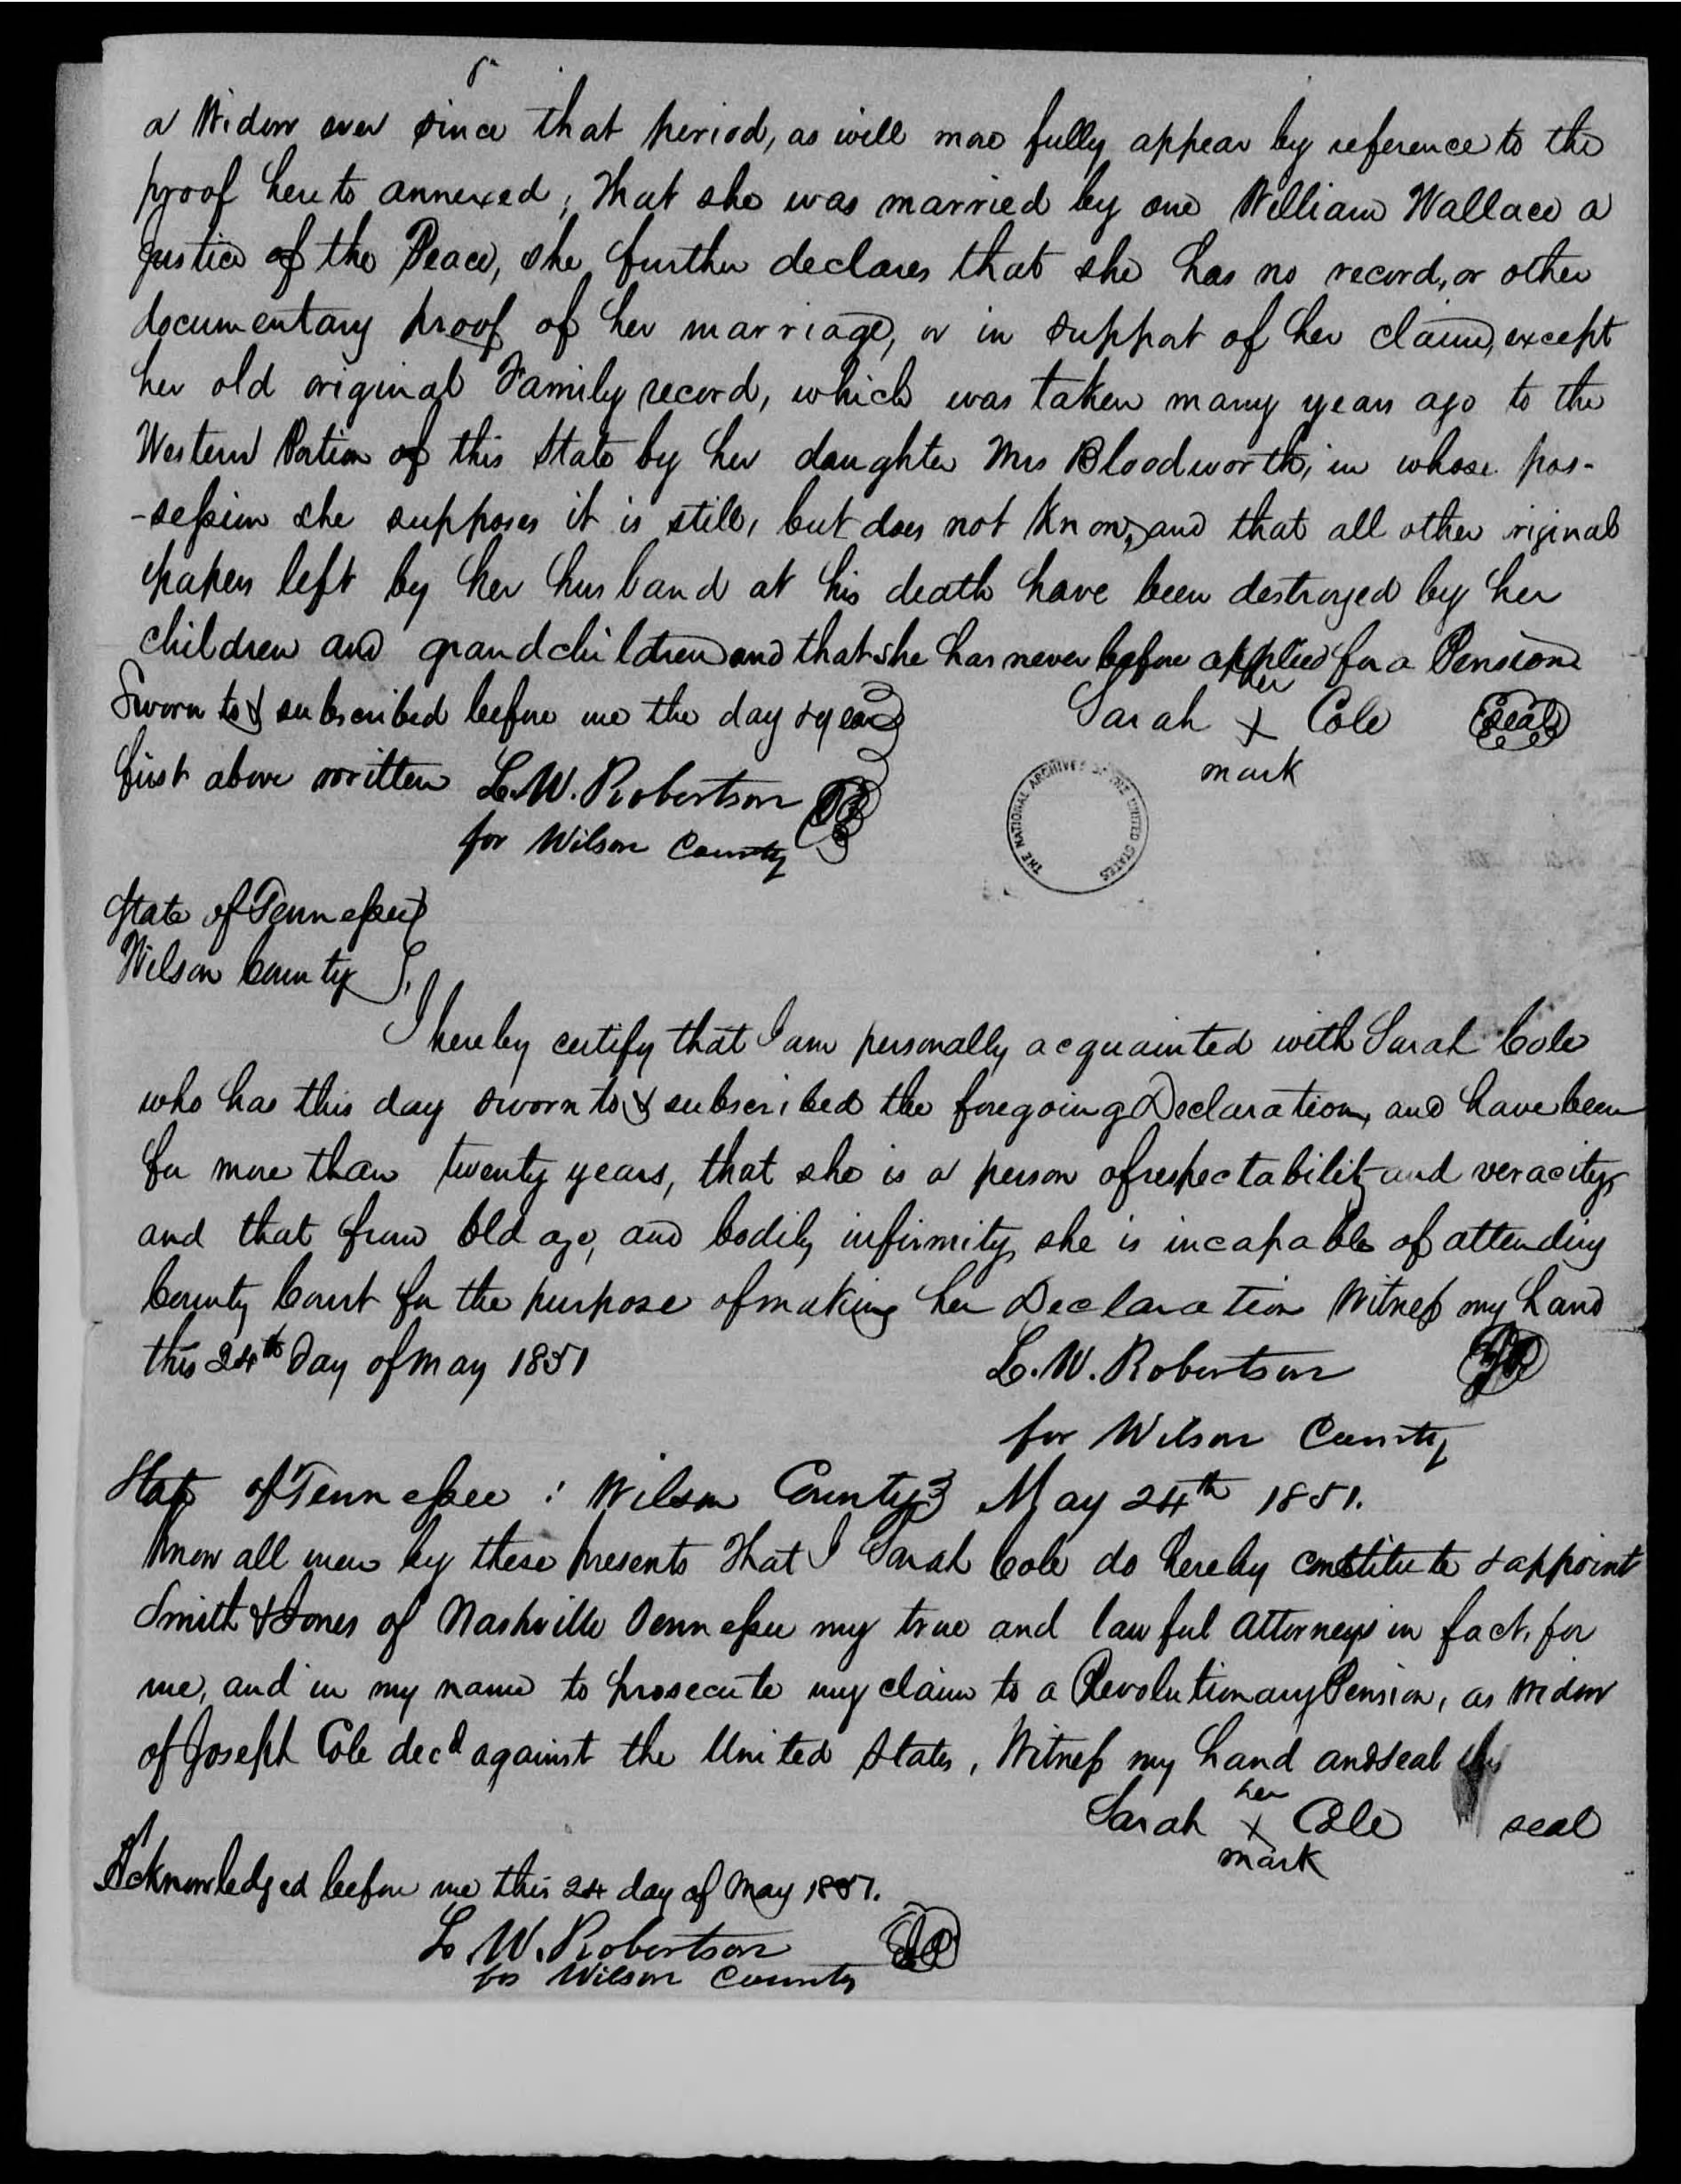 a Widow ever since that period, as will more fully appear by reference to the
proof hereto annexed, That she was married by one William Wallace a
Justice of the Peace, she further declares that she has no record, or other
documentary proof of her marriage, or in support of her claim, except
her old original Family record, which was taken many years ago to the
Western Portion of this State by her daughter Mrs Bloodworth, in whose pos-
-session she supposes it is still, but does not Know, and that all other riginal
papers left by her husband at his death have been destroyed by her
children and grandchildren and that she has never before applied for a Pension
Sworn to & subscribed before me the day & year
her
Sarah X Cole seal
mark
first above written L. W. Robertson
for Wilson County
THE NATIONAL ARCHIVES OF THE UNITED STATES
State of Tennessee
Wilson County
I hereby certify that I am personally acquainted with Sarah Cole
who has this day sworn to & subscribed the foregoing Declaration, and have been
for more than twenty years, that she is a person of respectability and veracity,
and that from Old age, and bodily infirmity, she is incapable of attending
County Court for the purpose of making her Declaration Witness my hand
this 24th Day of May 1851
L. W. Robertson
for Wilson County
State of Tennessee : Wilson County } May 24th 1851.
Know all men by these presents That I Sarah Cole do hereby constitute & appoint
Smith & Jones of Nashville Tennessee my true and lawful Attorneys in fact, for
me, and in my name to prosecute my claim to a Revolutionary Pension, as widow
of Joseph Cole decd against the United States, Witness my hand and seal
her
Sarah X Cole seal
mark
Acknowledged before me this 24 day of May 1851.
L. W. Robertson
for Wilson County